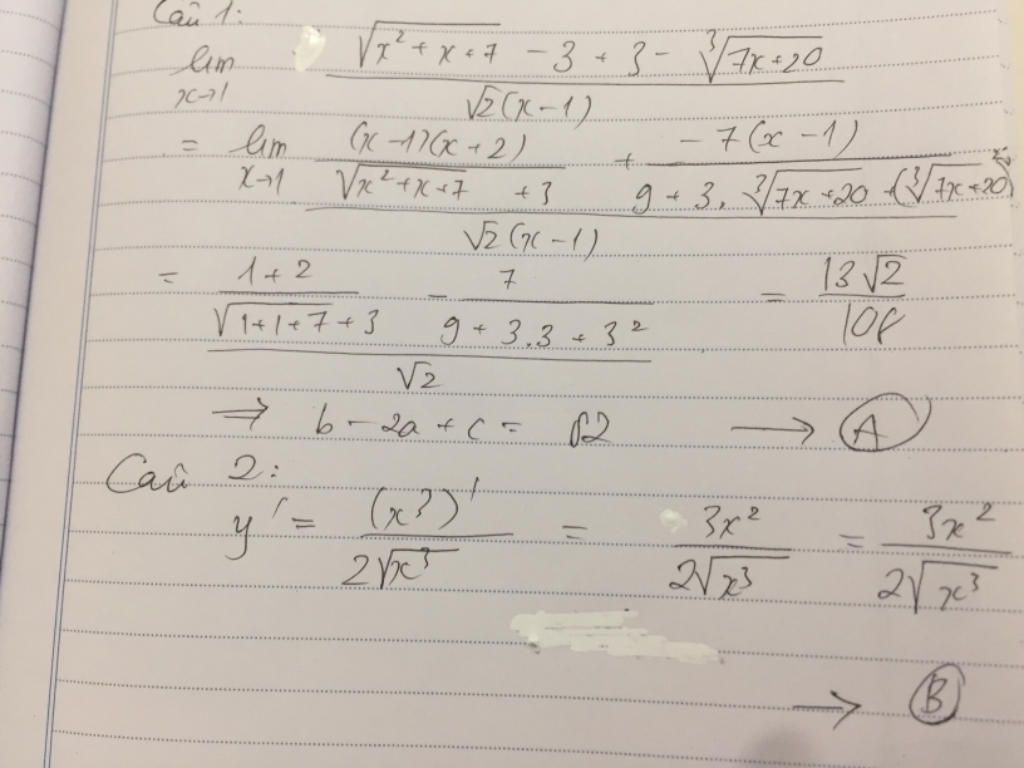 Câu 1:
lim x→1 (√(x² + x + 7) - 3 + 3 - ∛(7x+20)) / (√2(x-1))
= lim x→1 ((x-1)(x+2) / (√(x²+x+7) + 3) + -7(x-1) / (9 + 3.∛(7x+20) + (∛(7x+20))²)) / (√2(x-1))
= ((1+2) / (√(1+1+7) + 3) - 7 / (9 + 3.3 + 3²)) / √2 = 13√2 / 108
⇒ b - 2a + c = 82 → A
Câu 2:
y' = (x³)' / (2√x³) = 3x² / (2√x³) = 3x² / (2√x³)
→ B